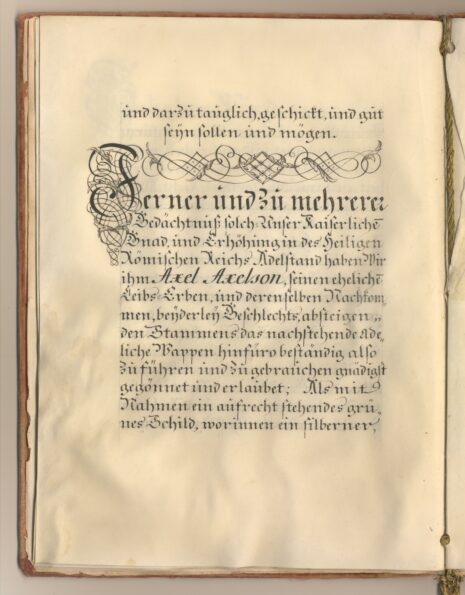 und darzu tauglich, geschickt, und gut
seyn sollen und mögen.
Ferner und zu mehrerer
Gedächtnuß solch Unser Kaiserliche
Gnad, und Erhöhung in des Heiligen
Römischen Reichs Adelstand haben Wir
ihm Axel Axelson, seinen eheliche
Leibs-Erben, und derenselben Nachkom
men, beyderley Geschlechts, absteigen„
den Stammens das nachstehende Ade„
liche Wappen hinfüro beständig also
zu führen und zu gebrauchen gnädigst
gegönnet und erlaubet; Als mit
Nahmen ein aufrecht stehendes grü„
nes Schild, worinnen ein silberner,